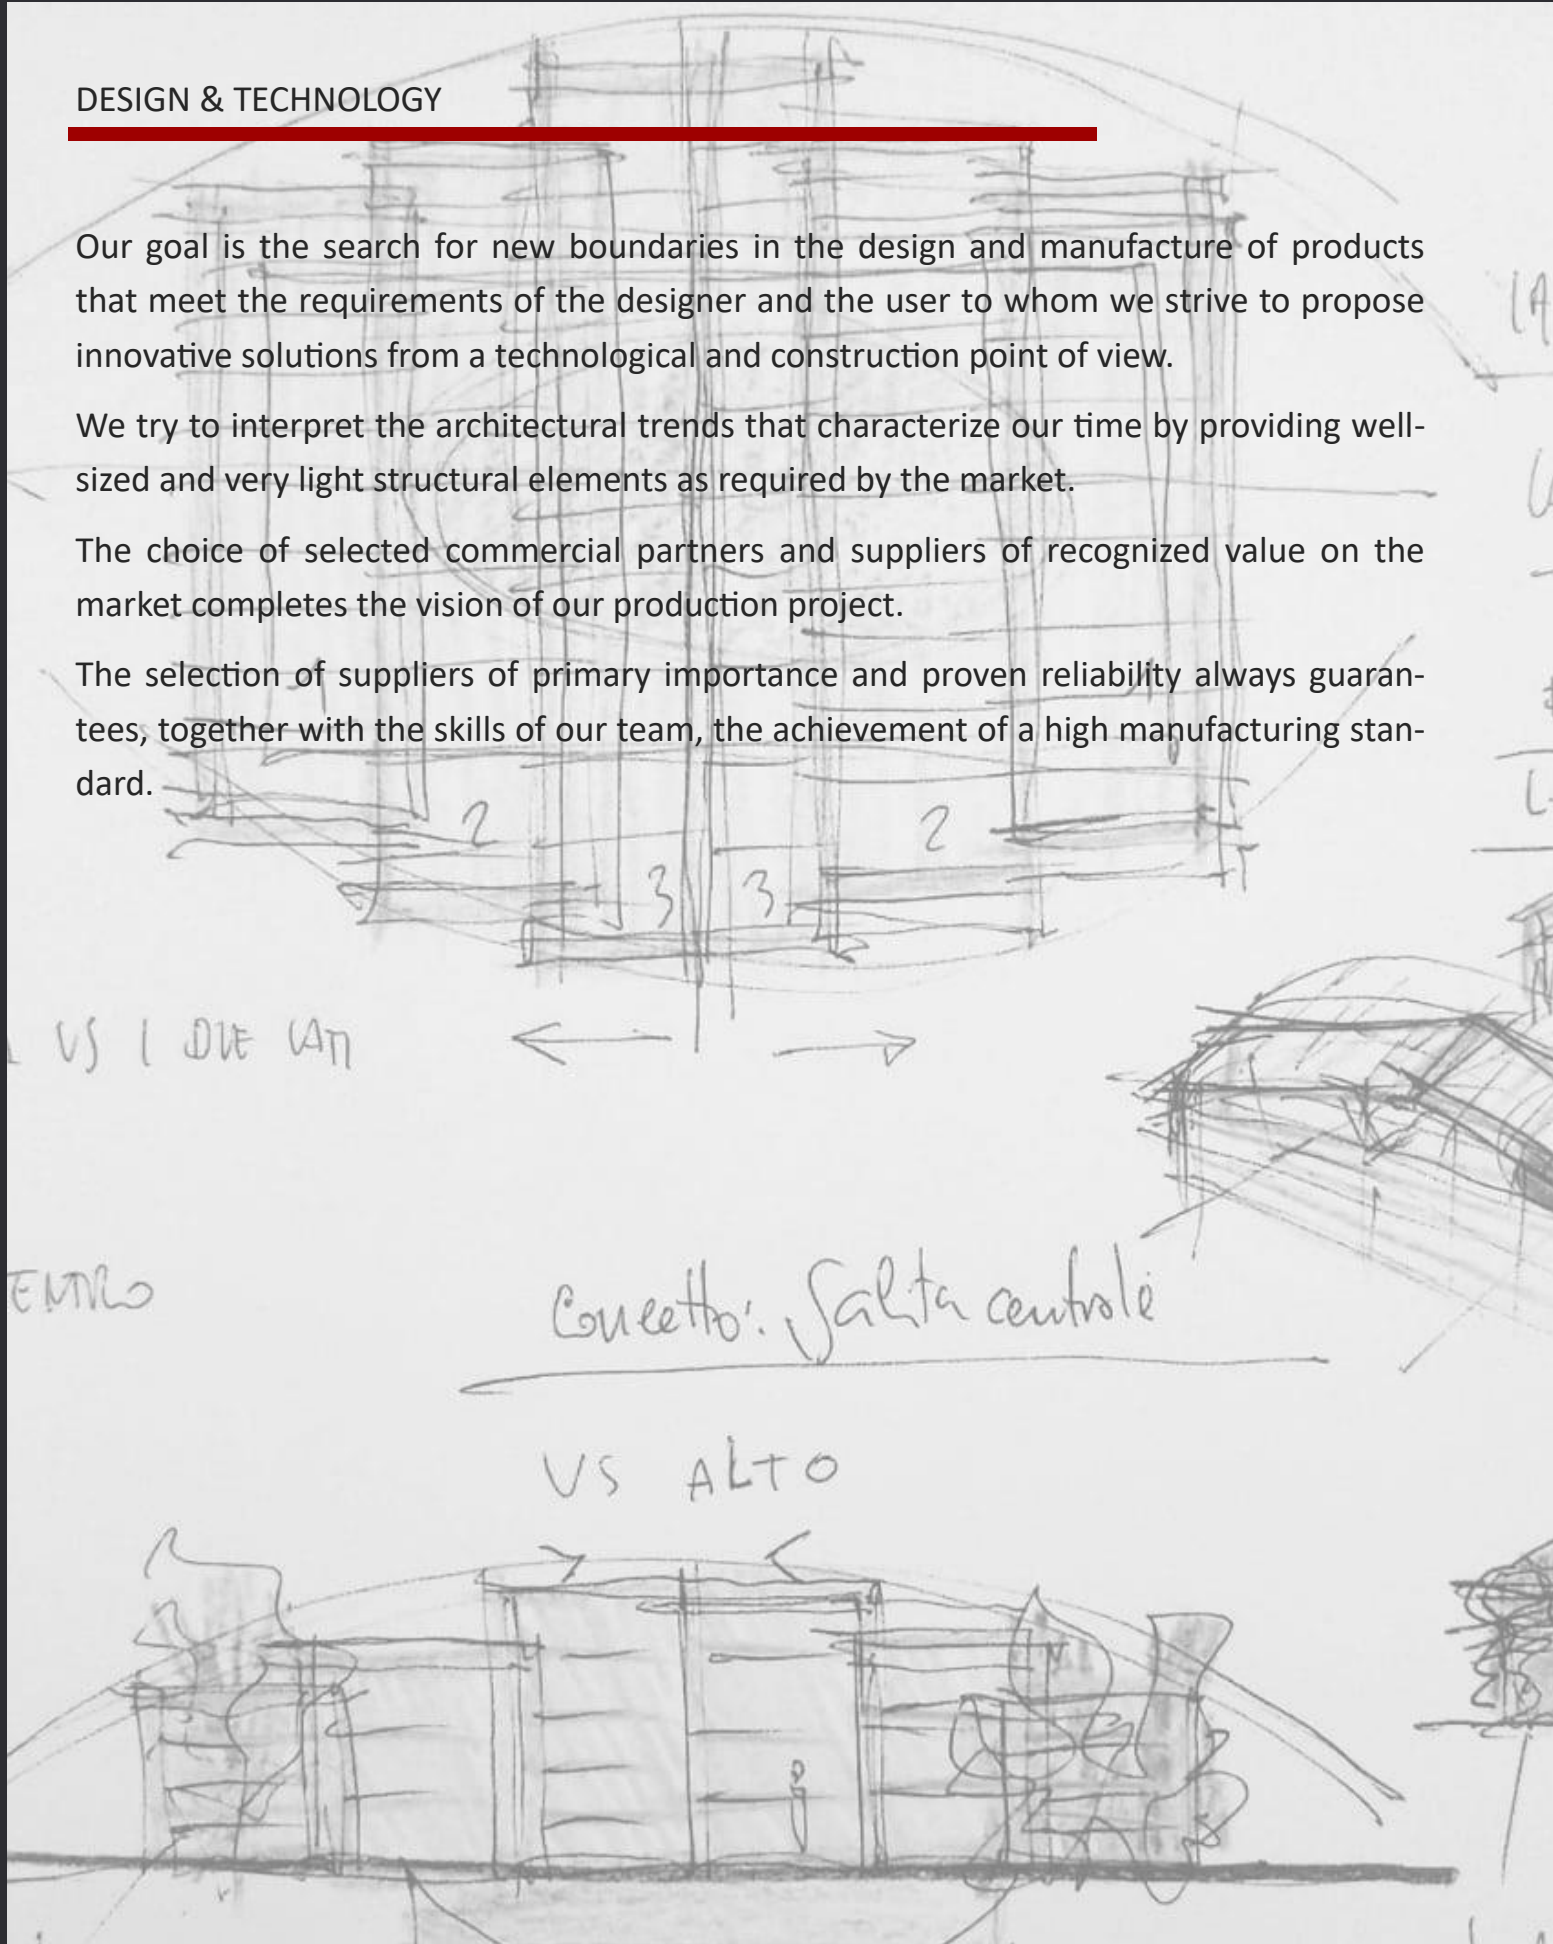 DESIGN & TECHNOLOGY
Our goal is the search for new boundaries in the design and manufacture of products
that meet the requirements of the designer and the user to whom we strive to propose
innovative solutions from a technological and construction point of view.
We try to interpret the architectural trends that characterize our time by providing well-
sized and very light structural elements as required by the market.
The choice of selected commercial partners and suppliers of recognized value on the
market completes the vision of our production project.
The selection of suppliers of primary importance and proven reliability always guaran-
tees, together with the skills of our team, the achievement of a high manufacturing stan-
dard.
1 1
2 2
3 3
VS I DUE LATI
ENTRO
Concetto: Salita centrale
VS ALTO